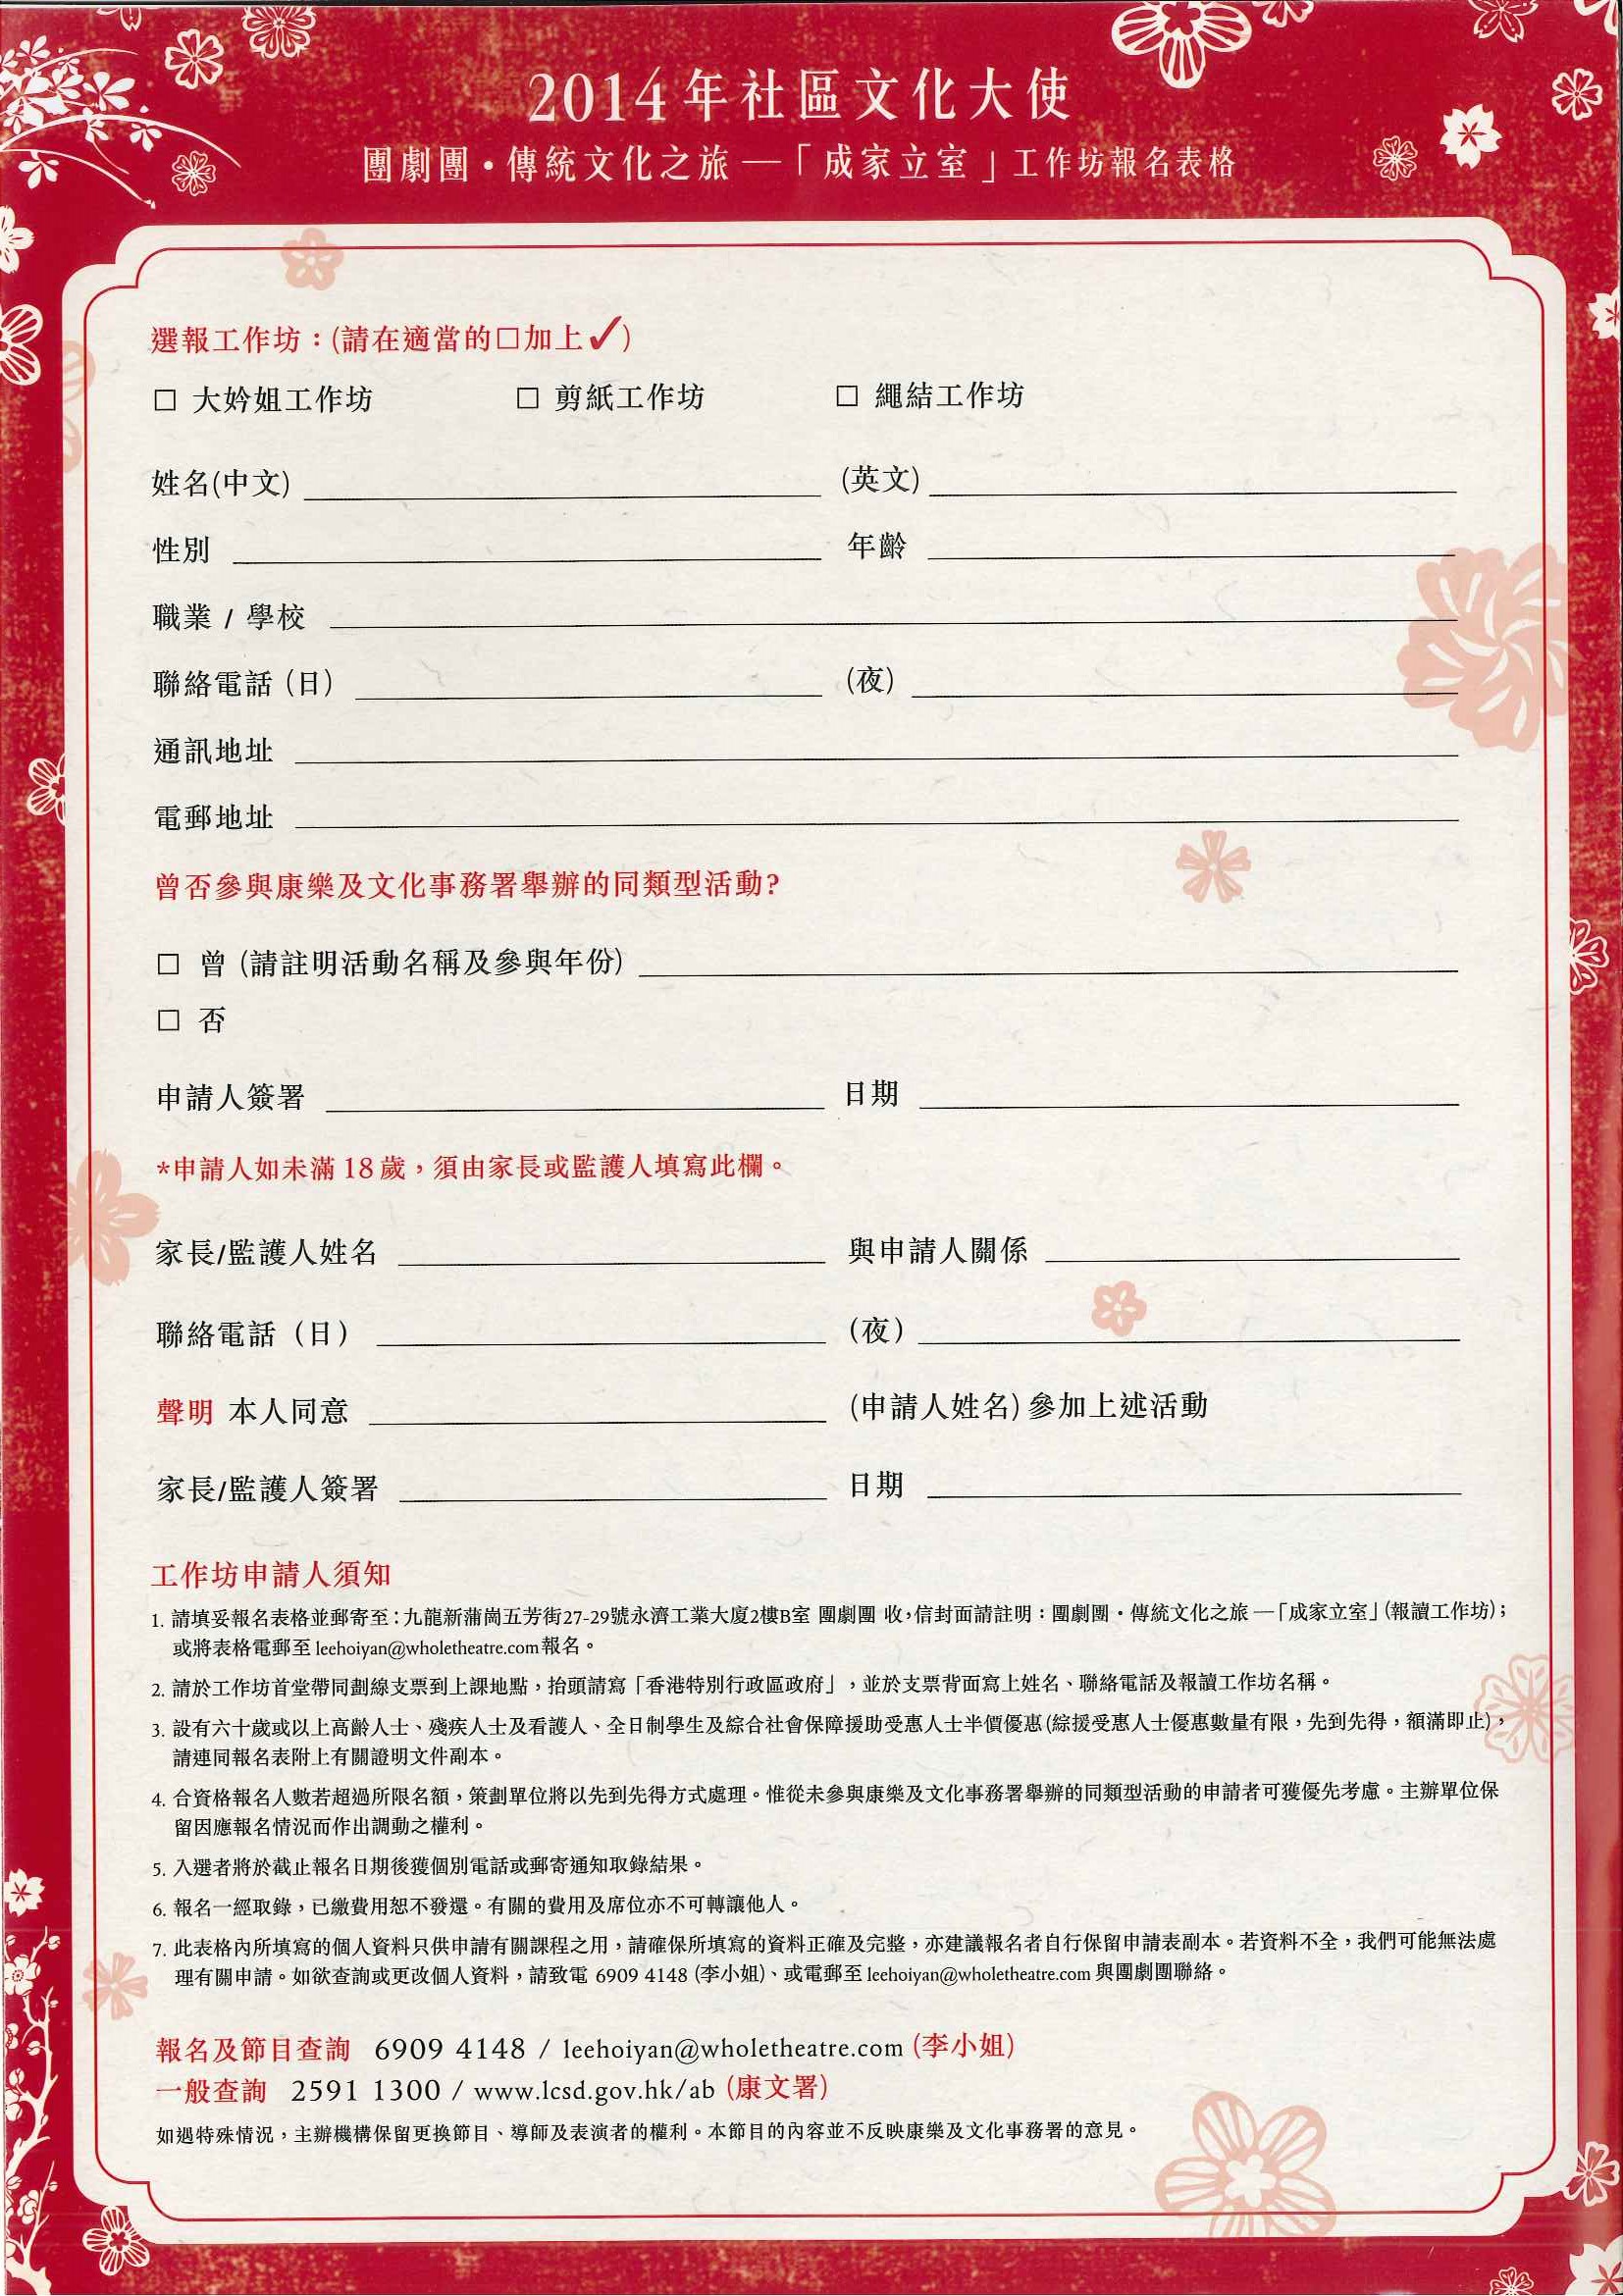 2014年社區文化大使
團劇團・傳統文化之旅 —「成家立室」工作坊報名表格
選報工作坊：(請在適當的□加上✓)
□ 大妗姐工作坊 □ 剪紙工作坊 □ 繩結工作坊
姓名(中文) (英文)
性別 年齡
職業 / 學校
聯絡電話 (日) (夜)
通訊地址
電郵地址
曾否參與康樂及文化事務署舉辦的同類型活動?
□ 曾 (請註明活動名稱及參與年份)
□ 否
申請人簽署 日期
*申請人如未滿 18 歲，須由家長或監護人填寫此欄。
家長/監護人姓名 與申請人關係
聯絡電話（日） （夜）
聲明 本人同意 (申請人姓名) 參加上述活動
家長/監護人簽署 日期
工作坊申請人須知
1. 請填妥報名表格並郵寄至：九龍新蒲崗五芳街27-29號永濟工業大廈2樓B室 團劇團 收，信封面請註明：團劇團・傳統文化之旅 —「成家立室」(報讀工作坊)；
或將表格電郵至 leehoiyan@wholetheatre.com 報名。
2. 請於工作坊首堂帶同劃線支票到上課地點，抬頭請寫「香港特別行政區政府」，並於支票背面寫上姓名、聯絡電話及報讀工作坊名稱。
3. 設有六十歲或以上高齡人士、殘疾人士及看護人、全日制學生及綜合社會保障援助受惠人士半價優惠 (綜援受惠人士優惠數量有限，先到先得，額滿即止)，
請連同報名表附上有關證明文件副本。
4. 合資格報名人數若超過所限名額，策劃單位將以先到先得方式處理。惟從未參與康樂及文化事務署舉辦的同類型活動的申請者可獲優先考慮。主辦單位保
留因應報名情況而作出調動之權利。
5. 入選者將於截止報名日期後獲個別電話或郵寄通知取錄結果。
6. 報名一經取錄，已繳費用恕不發還。有關的費用及席位亦不可轉讓他人。
7. 此表格內所填寫的個人資料只供申請有關課程之用，請確保所填寫的資料正確及完整，亦建議報名者自行保留申請表副本。若資料不全，我們可能無法處
理有關申請。如欲查詢或更改個人資料，請致電 6909 4148 (李小姐)、或電郵至 leehoiyan@wholetheatre.com 與團劇團聯絡。
報名及節目查詢 6909 4148 / leehoiyan@wholetheatre.com (李小姐)
一般查詢 2591 1300 / www.lcsd.gov.hk/ab (康文署)
如遇特殊情況，主辦機構保留更換節目、導師及表演者的權利。本節目的內容並不反映康樂及文化事務署的意見。